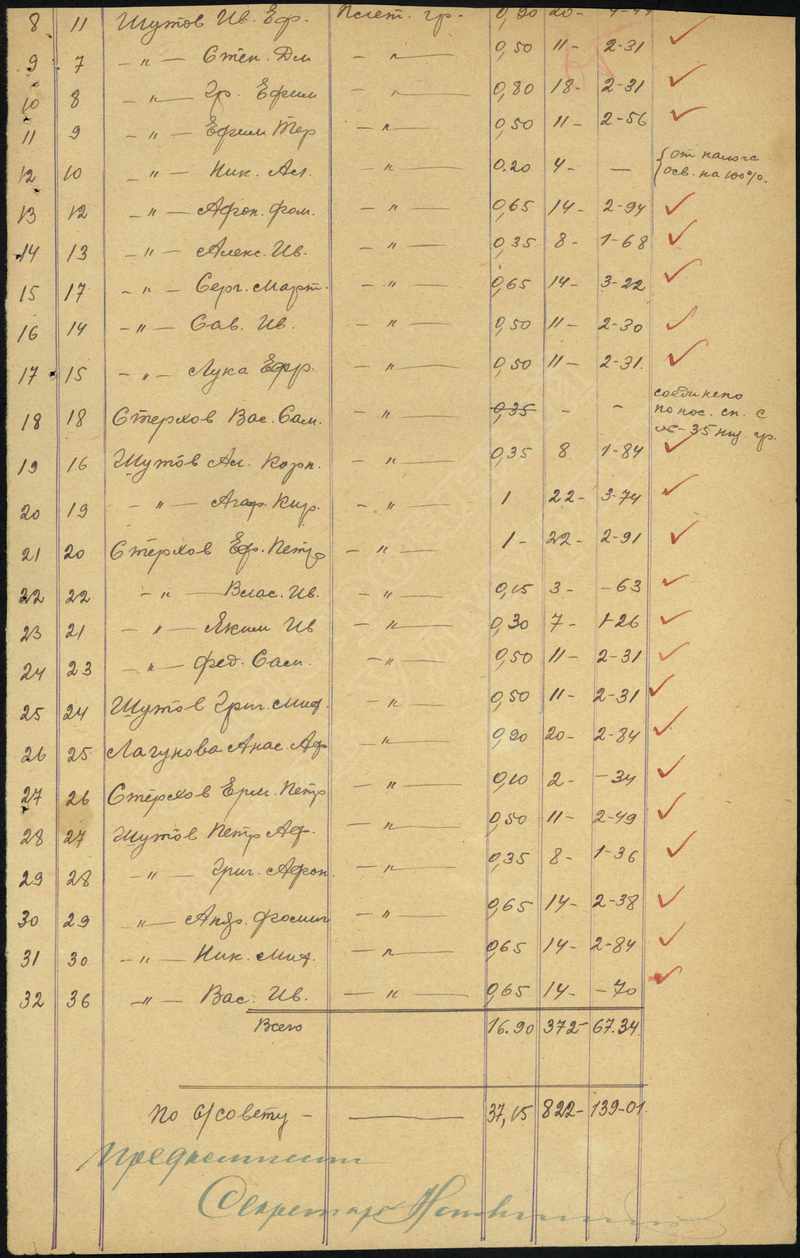 8 11 Шутов Ив. Еф. Пслет. гр. 0,90 20-
9 7 -„- Степ. Дм -„- 0,50 11- 2-31
10 8 -„- Гр. Ефим -„- 0,80 18- 2-31
11 9 -„- Ефим Тер -„- 0,50 11- 2-56
12 10 -„- Ник. Ал. -„- 0.20 4- — от налога
осв. на 100%.
13 12 -„- Афон. Фом. -„- 0,65 14- 2-94
14 13 -„- Алекс. Ив. -„- 0,35 8- 1-68
15 17 -„- Серг. Март. -„- 0,65 14- 3-22
16 14 -„- Сав. Ив. -„- 0,50 11- 2-30
17 15 -„- Лука Ефр. -„- 0,50 11- 2-31.
соединено
18 18 Стерхов Вас. Сам. -„- 0,35 - - по пос. сп. с
№- 35 гр.
19 16 Шутов Ал. Корн. -„- 0,35 8 1-84
20 19 -„- Агаф. Кир. -„- 1 22- 3-74
21 20 Стерхов Еф. Петр -„- 1- 22- 2-91
22 22 -„- Влас. Ив. -„- 0,15 3- -63
23 21 -„- Яким Ив -„- 0,30 7- 1-26
24 23 -„- Фед. Сам. -„- 0,50 11- 2-31
25 24 Шутов Григ. Миф. -„- 0,50 11- 2-31
26 25 Лагунова Анас. Аф -„- 0,90 20- 2-84
27 26 Стерхов Ерм. Петр -„- 0,10 2- -34
28 27 Шутов Петр Аф. -„- 0,50 11- 2-49
29 28 -„- Григ. Афон. -„- 0,35 8- 1-36
30 29 -„- Андр. Фомич -„- 0,65 14- 2-38
31 30 -„- Ник. Миф. -„- 0,65 14- 2-84
32 36 -„- Вас. Ив. -„- 0,65 14- -70
Всего 16.90 372- 67.34
По с/совету - — 37,15 822- 139-01.
Секретарь